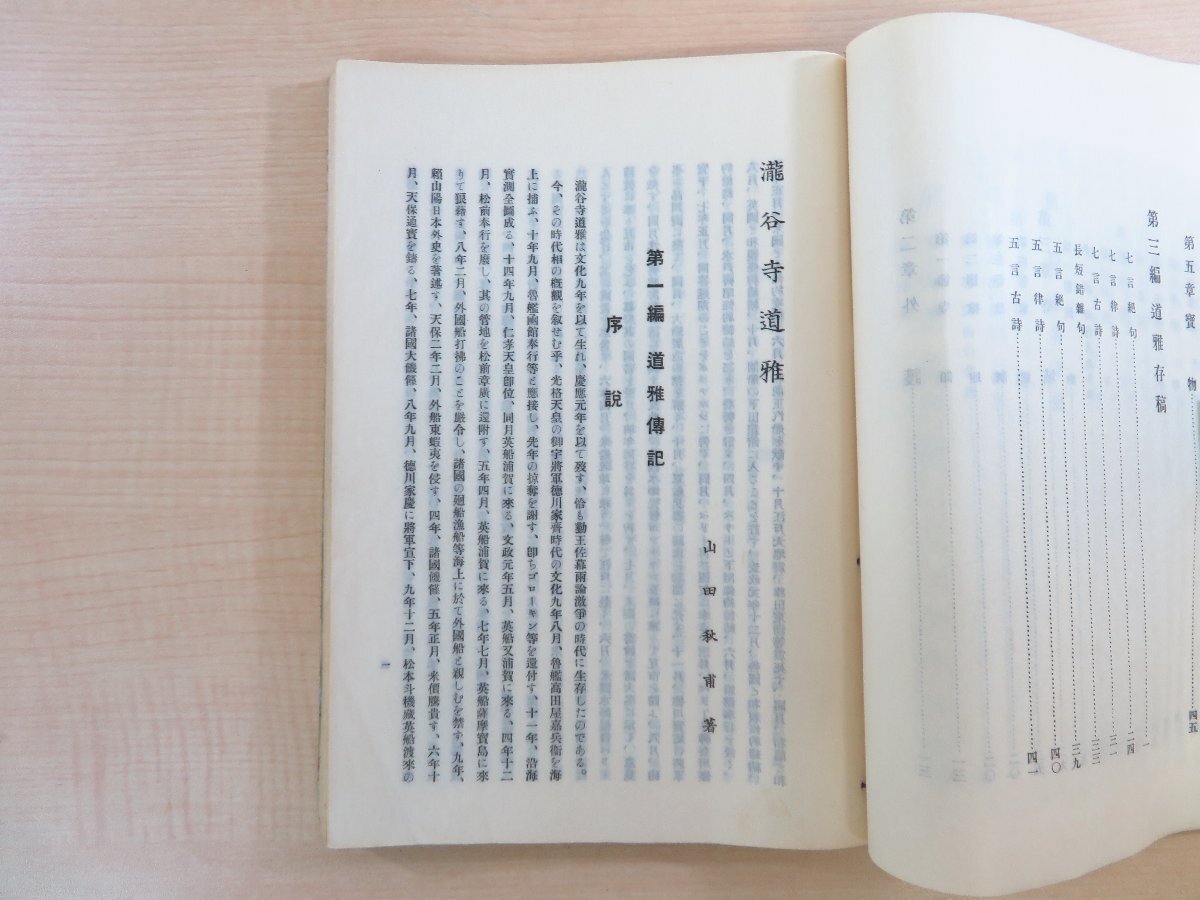 第五章 寶物……四五
第三編 道雅存稿
七言絕句……一
七言律詩……二四
七言古詩……三一
長短錯雜句……三九
五言絕句……四〇
五言律詩
五言古詩……四一
瀧谷寺道雅
山田秋甫著
第一編 道雅傳記
序說
瀧谷寺道雅は文化九年を以て生れ、慶應元年を以て歿す、恰も勤王佐幕兩論激爭の時代に生存したのである。
今、その時代相の概觀を叙せむ乎、光格天皇の御宇將軍德川家齊時代の文化九年八月、魯艦高田屋嘉兵衞を海
上に捕ふ、十年九月、魯艦函館奉行等と應接し、先年の掠奪を謝す、卽ちゴローキン等を還付す、十一年、沿海
實測全圖成る、十四年九月、仁孝天皇卽位、同月英船浦賀に來る、文政元年五月、英船又浦賀に來る、四年十二
月、松前奉行を廢し、其の管地を松前章廣に還附す、五年四月、英船浦賀に來る、七年七月、英船薩摩寶島に來
りて狼藉す、八年二月、外國船打拂のことを嚴令し、諸國の廻船漁船等海上に於て外國船と親しむを禁す、九年、
賴山陽日本外史を著述す、天保二年二月、外船東蝦夷を侵す、四年、諸國饑饉、五年正月、米價騰貴す、六年十
月、天保通寶を鑄る、七年、諸國大饑饉、八年九月、德川家慶に將軍宣下、九年十二月、松本斗機藏英船渡來の
一